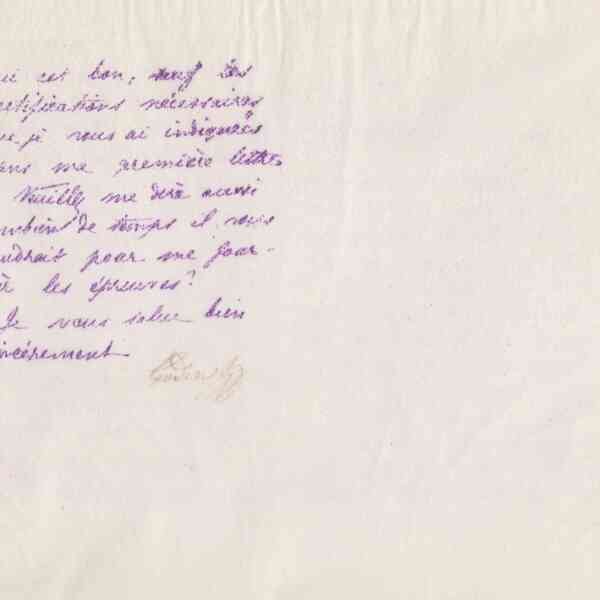 est bon, sauf les
ctifications nécessaires
ue je vous ai indiquées
ans me première lettre
Veuillez me dire aussi
mbien de temps il vous
udrait pour me four-
ir les épreuves?
Je vous salue bien
incèrement